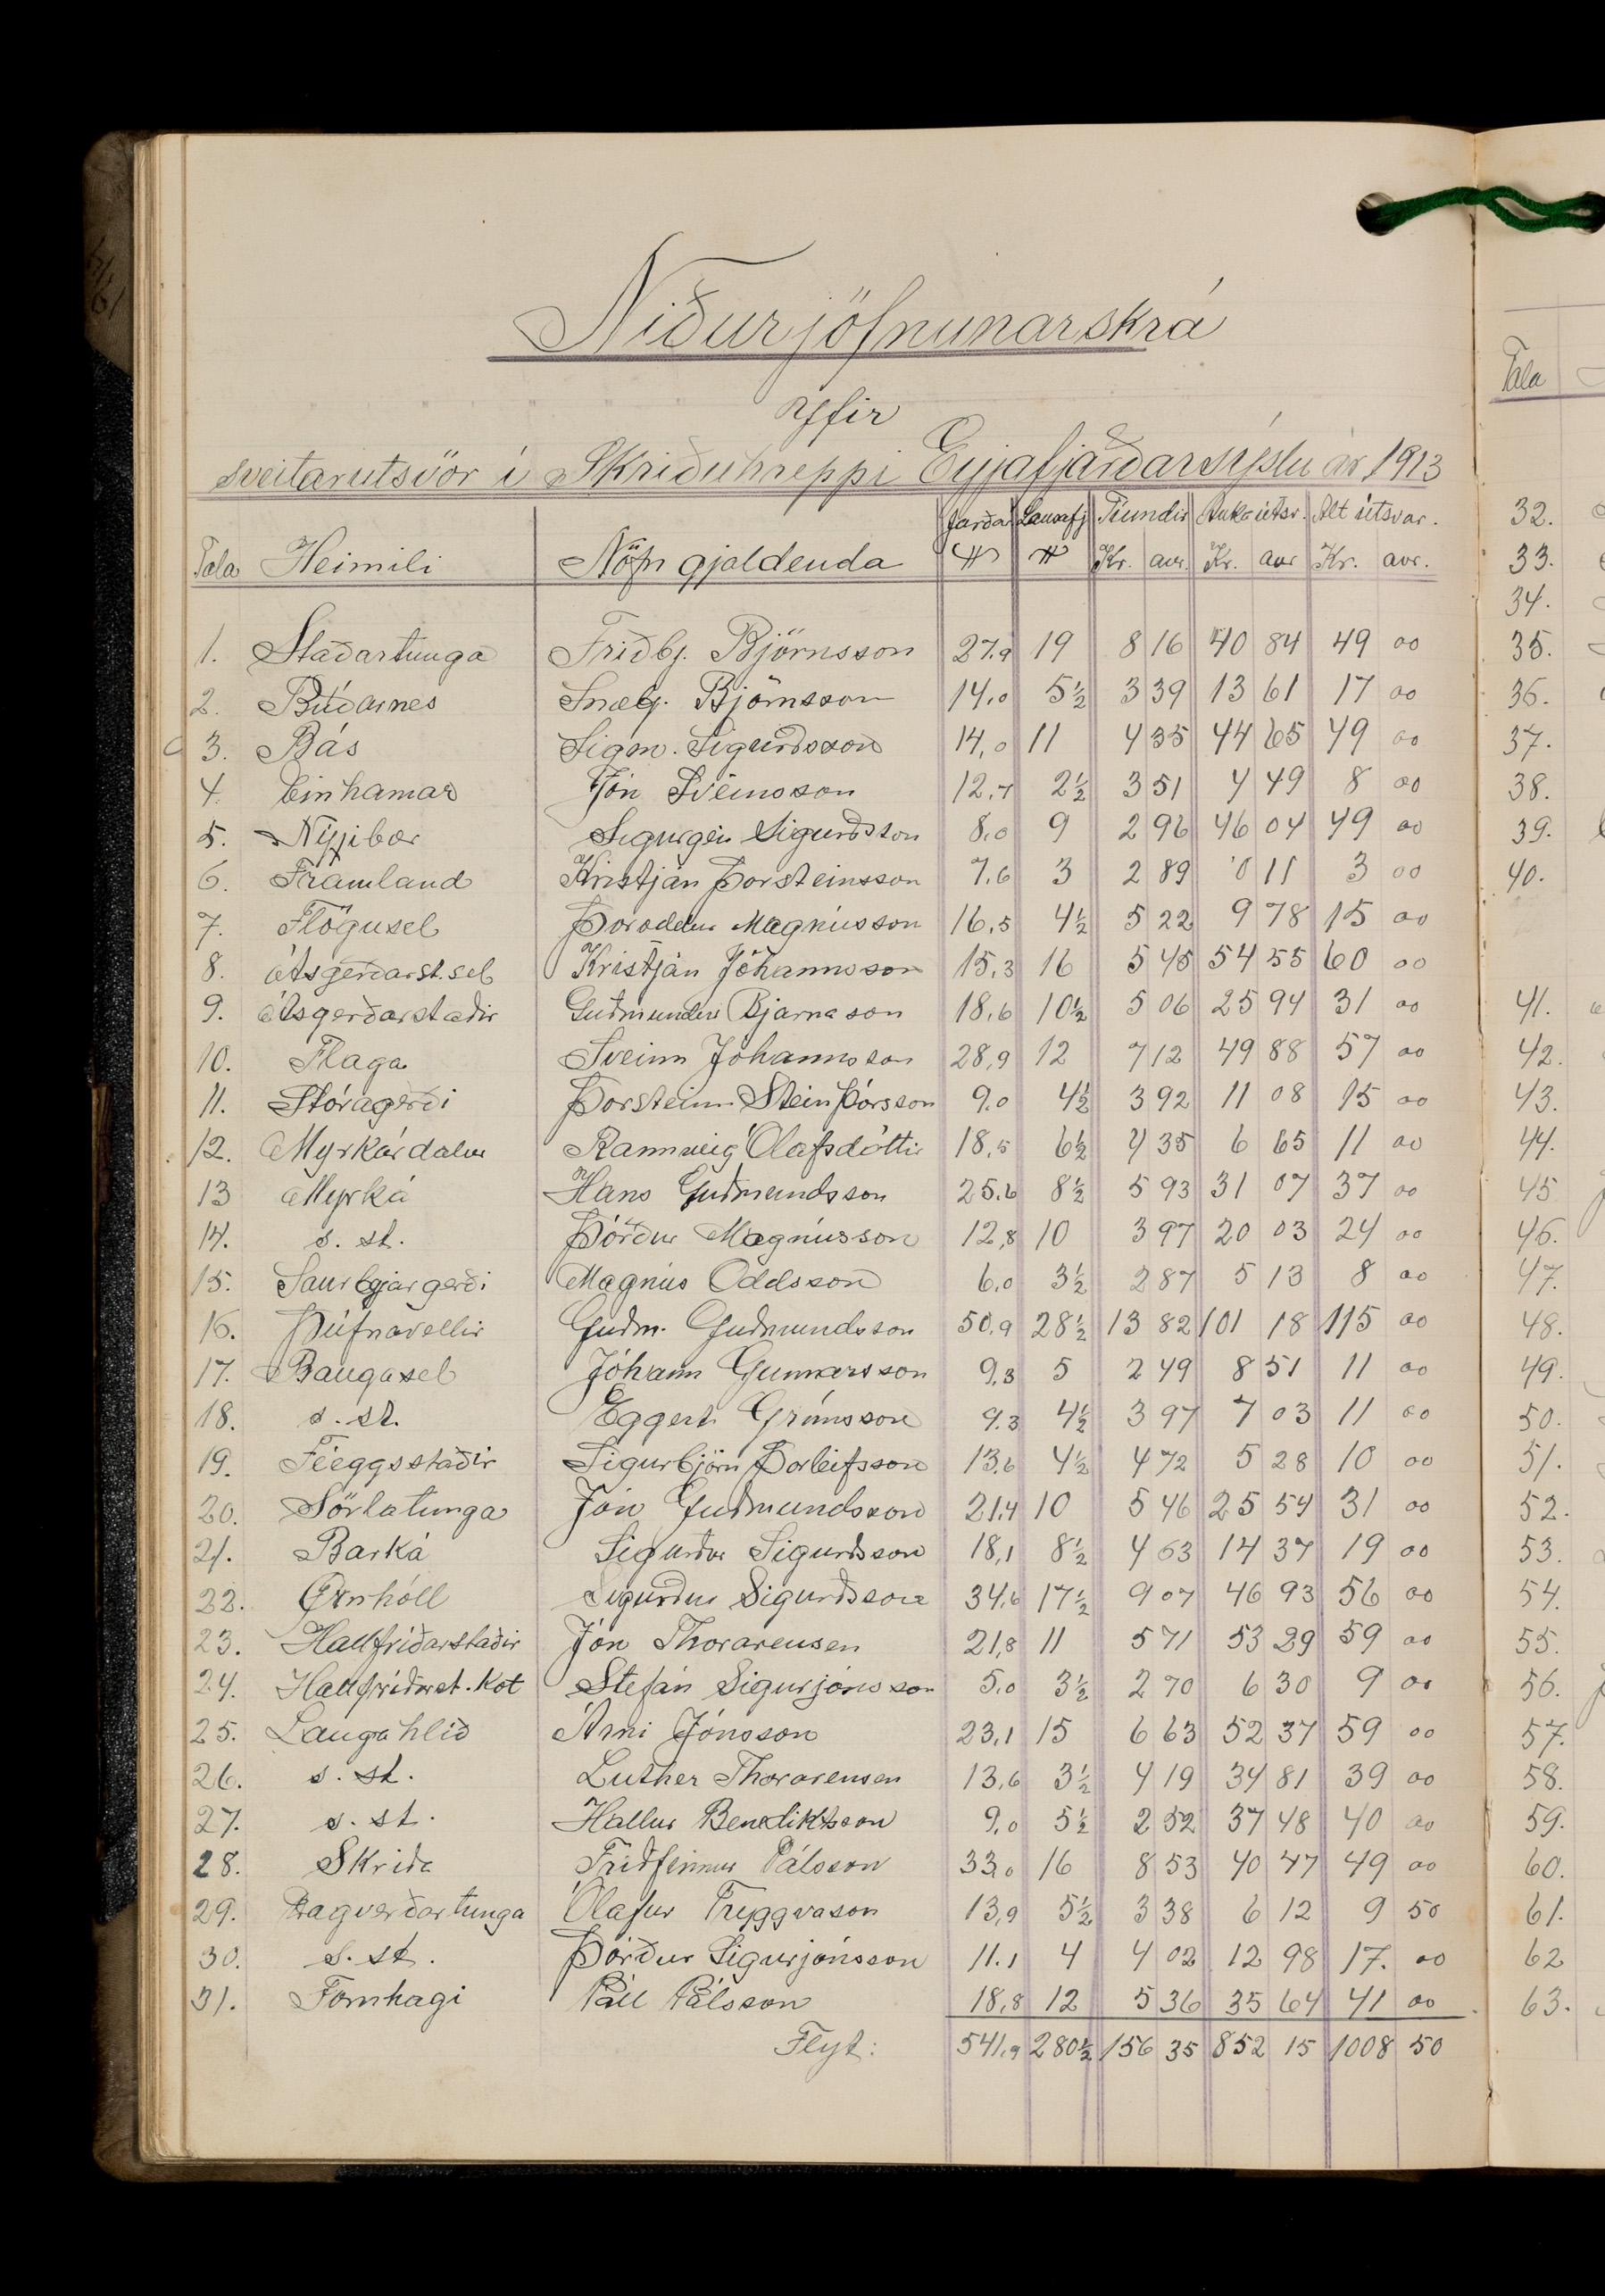 Niðurjöfnunarskrá
yfir
sveitarutsvör i Skriðuhreppi Eyjafjarðarsýslu ár 1913
Jarðar Lausafj Tíundir Auka útsv. Alt útsvar.
Tala Heimili Nöfn gjaldenda Kr. aur. Kr. aur Kr. aur.
1. Staðartunga Friðbj. Björnsson 27.9 19 8 16 40 84 49 00
2. Búðarnes Snæbj. Björnsson 14.0 5½ 3 39 13 61 17 00
3. Bás Sigm. Sigurðsson 14,0 11 4 35 44 65 49 00
4. Einhamar Jón Sveinsson 12.7 2½ 3 51 4 49 8 00
5. Nýjibær Sigurgeir Sigurðsson 8.0 9 2 96 46 04 49 00
6. Framland Kristján Þorsteinsson 7.6 3 2 89 0 11 3 00
7. Flögusel Þoroddur Magnússon 16,5 4½ 5 22 9 78 15 00
8. Ásgerðarst.sel Kristján Jóhannsson 15,3 16 5 45 54 55 60 00
9. Ásgerðarstaðir Guðmundur Bjarnason 18,6 10½ 5 06 25 94 31 00
10. Flaga Sveinn Jóhannsson 28,9 12 7 12 49 88 57 00
11. Stóragerði Þorsteinn Steinþórsson 9.0 4½ 3 92 11 08 15 00
12. Myrkárdalur Rannveig Ólafsdóttir 18,5 6½ 4 35 6 65 11 00
13 Myrká Hans Guðmundsson 25.6 8½ 5 93 31 07 37 00
14. s. st. Þórður Magnússon 12,8 10 3 97 20 03 24 00
15. Saurbæjargerði Magnús Oddsson 6,0 3½ 2 87 5 13 8 00
16. Þúfnavellir Guðm. Guðmundsson 50,9 28½ 13 82 101 18 115 00
17. Baugasel Jóhann Gunnarsson 9,3 5 2 49 8 51 11 00
18. s. st. Eggert Grímsson 9.3 4½ 3 97 7 03 11 00
19. Féeggsstaðir Sigurbjörn Þorleifsson 13,6 4½ 4 72 5 28 10 00
20. Sörlatunga Jón Guðmundsson 21,4 10 5 46 25 54 31 00
21. Barká Sigurður Sigurðsson 18,1 8½ 4 63 14 37 19 00
22. Örnhóll Sigurður Sigurðsson 34,6 17½ 9 07 46 93 56 00
23. Hallfríðarstaðir Jón Thorarensen 21,8 11 5 71 53 29 59 00
24. Hallfríðarst. Kot Stefán Sigurjónsson 5,0 3½ 2 70 6 30 9 00
25. Laugahlíð Árni Jónsson 23,1 15 6 63 52 37 59 00
26. s. st. Luther Thorarensen 13,6 3½ 4 19 34 81 39 00
27. s. st. Hallur Benediktsson 9,0 5½ 2 52 37 48 40 00
28. Skriða Friðfinnur Pálsson 33,0 16 8 53 40 47 49 00
29. Dagverðartunga Ólafur Tryggvason 13,9 5½ 3 38 6 12 9 50
30. s. st. Þórður Sigurjónsson 11.1 4 4 02 12 98 17. 00
31. Fornhagi Páll Pálsson 18,8 12 5 36 35 64 41 00
Flyt: 541,9 280½ 156 35 852 15 1008 50
Tala
32.
33.
34.
35.
36.
37.
38.
39.
40.
41.
42.
43.
44.
45
46.
47.
48.
49.
50.
51.
52.
53.
54.
55.
56.
57.
58.
59.
60.
61.
62
63.